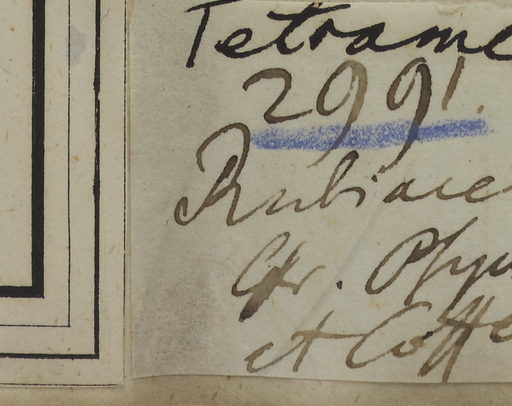 Tetrame
2991.
Rubiace
Cfr. Psyc
et Coffe